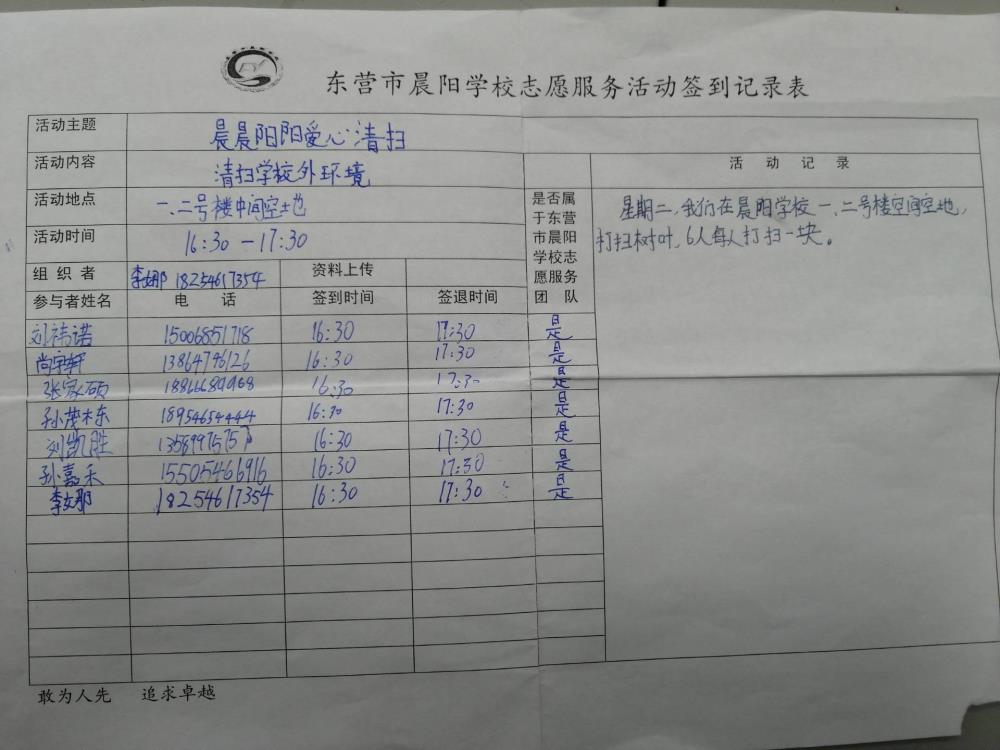 东营市晨阳学校志愿服务活动签到记录表
活动主题 晨晨阳阳爱心清扫
活动内容 清扫学校外环境
活动地点 一、二号楼中间空地
活动时间 16:30-17:30
组织者 李娜 18254617354 资料上传
参与者姓名 电话 签到时间 签退时间
是否属
于东营
市晨阳
学校志
愿服务
团队
活动记录
星期二,我们在晨阳学校一、二号楼空间空地,
打扫树叶,6人每人打扫一块。
刘祎诺 15006851718 16:30 17:30 是
尚宇轩 13864796126 16:30 17:30 是
张家硕 16:30 17:30 是
孙茂栋 18954654444 16:30 17:30 是
刘凯胜 16:30 17:30 是
孙嘉禾 15505466916 16:30 17:30 是
李娜 18254617354 16:30 17:30 是
敢为人先 追求卓越